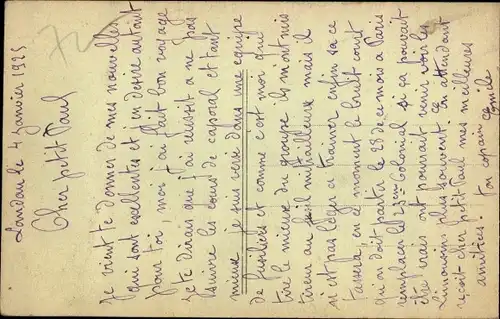 Landau le 4 Janvier 1925
Cher petit Paul
Je vient te donner de mes nouvelles
qui sont excellentes et j'en desire autant
pour toi, moi j'ai fait bon voyage
je te dirais que j'ai réussit a ne pas
suivre les cours de caporal et tant
mieux je suis versé dans une equipe
de fusiliers et comme c'est moi qui
tire le mieux du groupe ils m'ont mis
tireur au fusil mitrailleur mais il
n'est pas léger a trainer enfin sa ce
tassera, en ce moment le bruit court
qu'on doit partir le 28 de ce mois a Paris
remplacer les 23ème Colonial si ça pouvait
être vrais ont pourrait venir voir les
Limousin plus souvent. En attendant ce
reçoit cher petit Paul mes meilleures
amitiées. Ton copain Emile
72